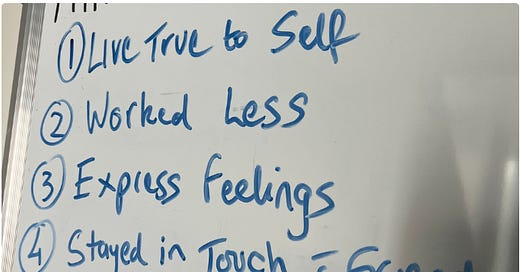 ① Live True to Self
② Worked Less
③ Express Feelings
④ Stayed in Touch -